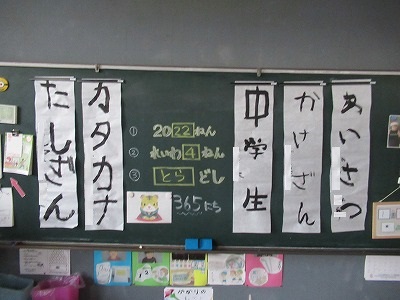 あいさつ
かけざん
中学生
① 2022ねん
② れいわ4ねん
③ とらどし
365にち
カタカナ
たしざん